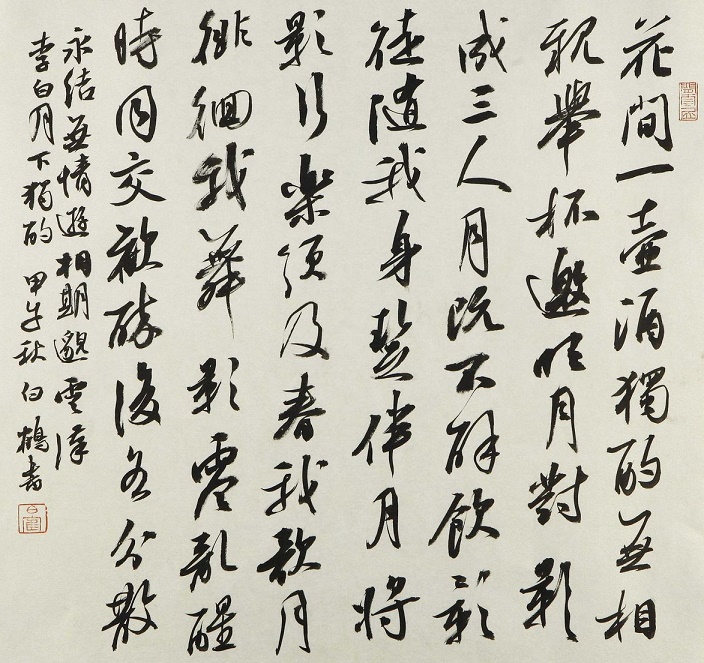 花間一壺酒獨酌無相
親舉杯邀明月對影
成三人月既不解飲影
徒隨我身暫伴月將
影行樂須及春我歌月
徘徊我舞影零亂醒
時同交歡醉後各分散
永結無情遊相期邈雲漢
李白月下獨酌 甲午秋白鶴書